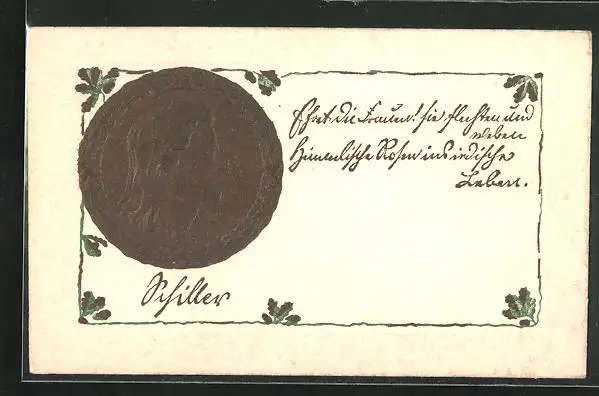 Ehret die Frauen! sie flechten und
weben
Himmlische Rosen ins irdische
Leben.
Schiller